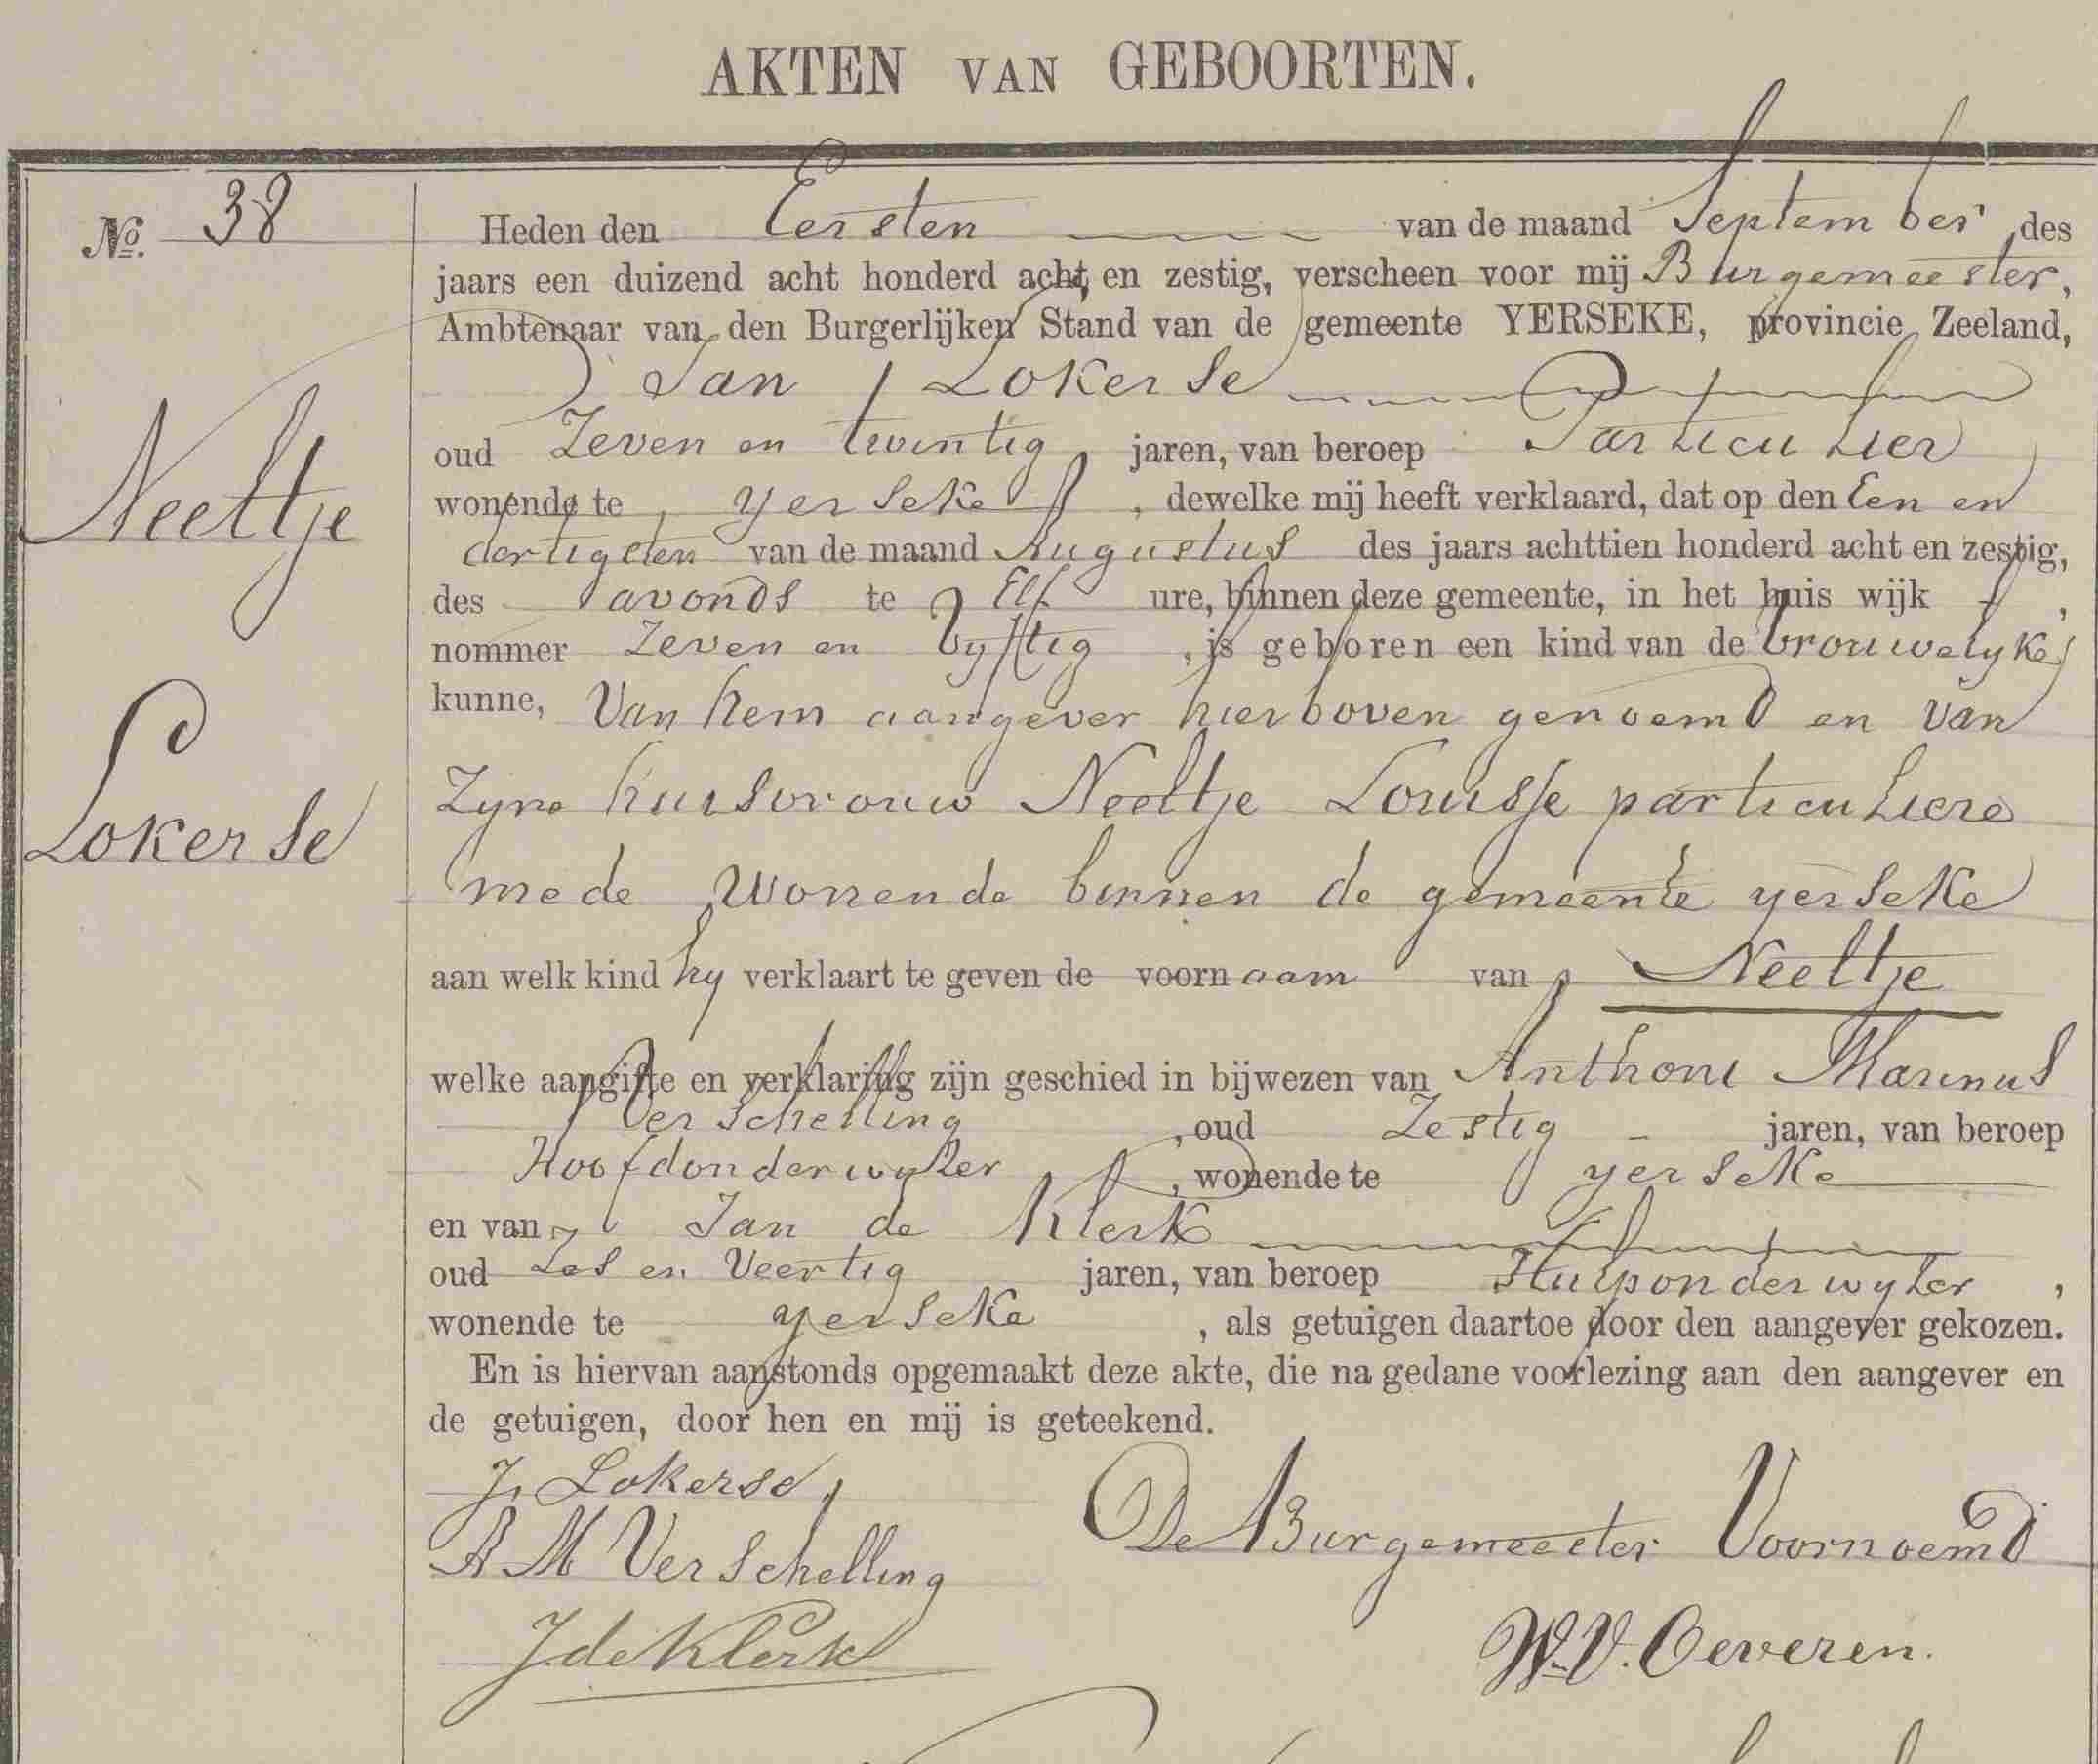 AKTEN VAN GEBOORTEN.
No. 38
Neeltje
Lokerse
Heden den Eersten van de maand September des
jaars een duizend acht honderd acht en zestig, verscheen voor mij Burgemeester,
Ambtenaar van den Burgerlijken Stand van de gemeente YERSEKE, provincie Zeeland,
Jan Lokerse
oud Zeven en twintig jaren, van beroep Particulier
wonende te Yerseke, dewelke mij heeft verklaard, dat op den Een en
dertigsten van de maand Augustus des jaars achttien honderd acht en zestig,
des avonds te Elf ure, binnen deze gemeente, in het huis wijk - ,
nommer Zeven en vyftig, is geboren een kind van de vrouwelyke
kunne, Van hem aangever hierboven genoemd en van
Zyne huisvrouw Neeltje Louisse particuliere
mede wonende binnen de gemeente yerseke
aan welk kind hy verklaart te geven de voornaam van Neeltje
welke aangifte en verklaring zijn geschied in bijwezen van Anthoni Marinus
Verschelling, oud Zestig - jaren, van beroep
Hoofdonderwyzer, wonende te yerseke
en van Jan de Klerk
oud Zes en Veertig jaren, van beroep Hulponderwyzer,
wonende te yerseke, als getuigen daartoe door den aangever gekozen.
En is hiervan aanstonds opgemaakt deze akte, die na gedane voorlezing aan den aangever en
de getuigen, door hen en mij is geteekend.
J. Lokerse
A M Verschelling
J de Klerk
De Burgemeester Voornoemd
Wm. V. Oeveren.